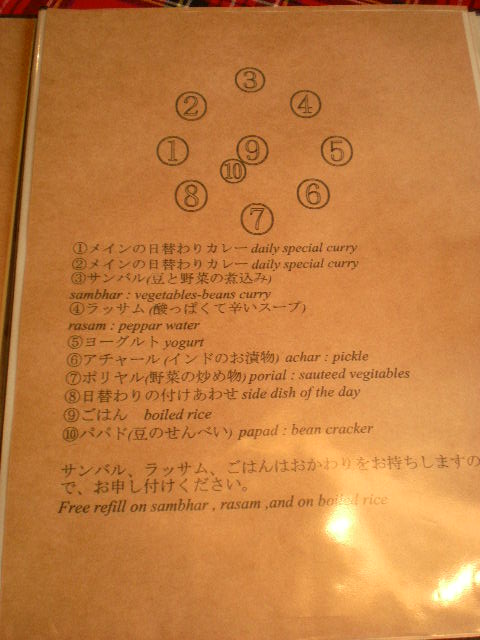 ③
② ④
① ⑨ ⑤
⑩
⑧ ⑥
⑦
①メインの日替わりカレー daily special curry
②メインの日替わりカレー daily special curry
③サンバル(豆と野菜の煮込み)
sambhar : vegetables-beans curry
④ラッサム (酸っぱくて辛いスープ)
rasam : peppar water
⑤ヨーグルト yogurt
⑥アチャール (インドのお漬物) achar : pickle
⑦ポリヤル(野菜の炒め物) porial : sauteed vegitables
⑧日替わりの付けあわせ side dish of the day
⑨ごはん boiled rice
⑩パパド(豆のせんべい) papad : bean cracker
サンバル、ラッサム、ごはんはおかわりをお持ちしますの
で、お申し付けください。
Free refill on sambhar , rasam ,and on boiled rice